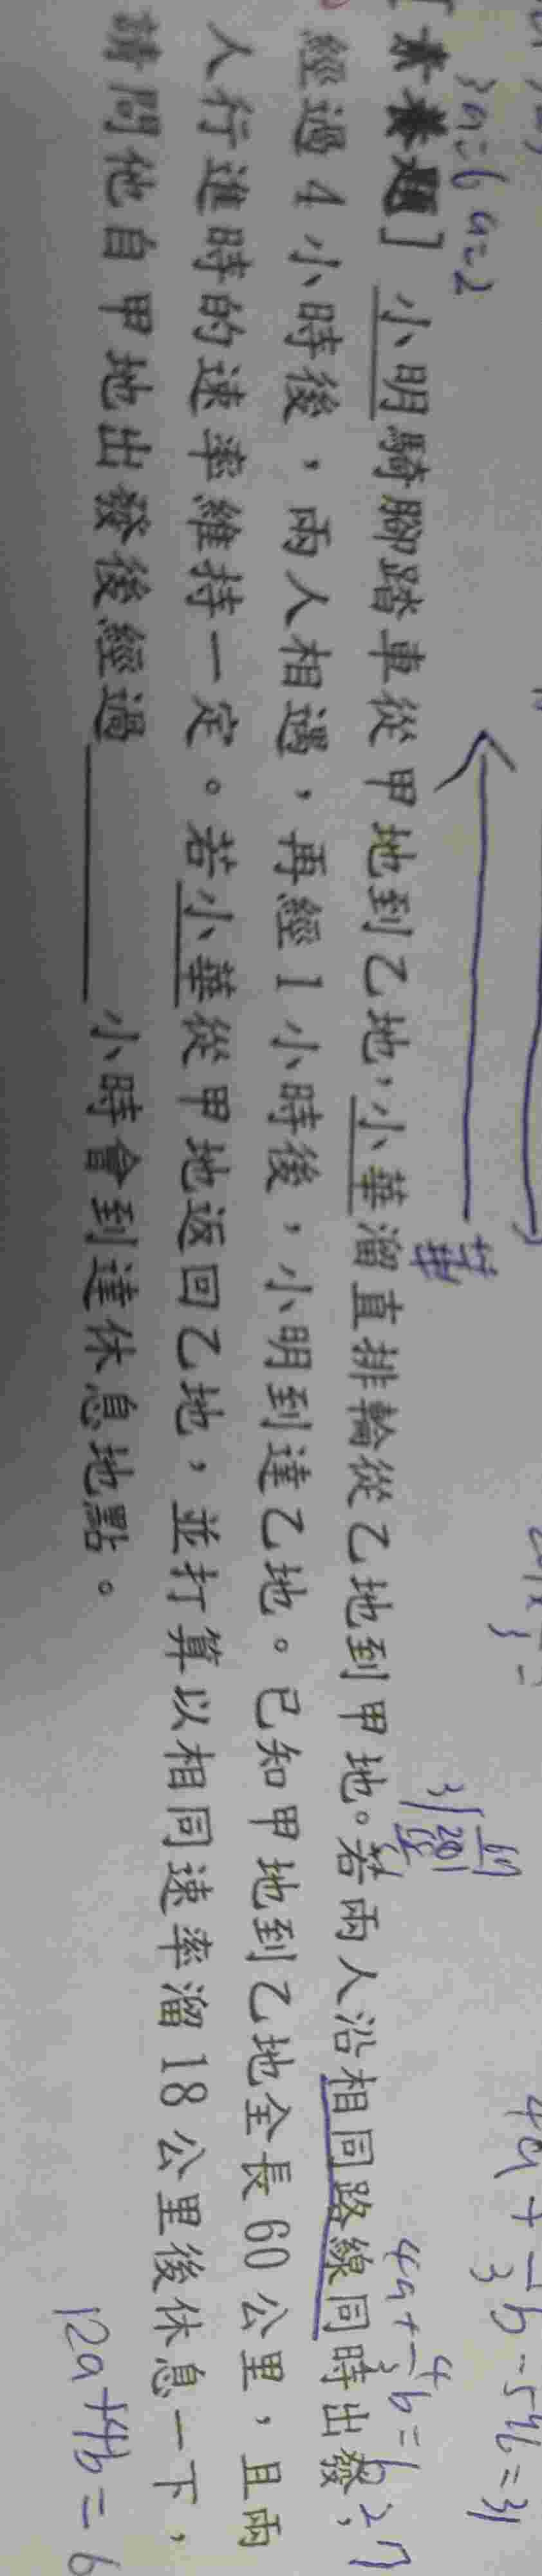 題] 小明騎腳踏車從甲地到乙地,小華溜直排輪從乙地到甲地。若兩人沿相同路線同時出發,
經過4小時後,兩人相遇,再經1小時後,小明到達乙地。已知甲地到乙地全長60公里,且兩
人行進時的速率維持一定。若小華從甲地返回乙地,並打算以相同速率溜18公里後休息一下,
請問他自甲地出發後經過______小時會到達休息地點。
3a=6 a=2
華
12a+4b=6